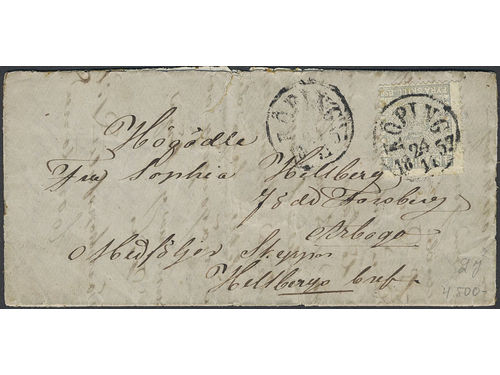 KÖPING
KÖPING
24
1857
FYRA SKILL. BCO
Högädla
Fru Sophia Hellberg
född Forsberg
Arboga
Medföljer Skeppar
Hellbergs bref
4.500-